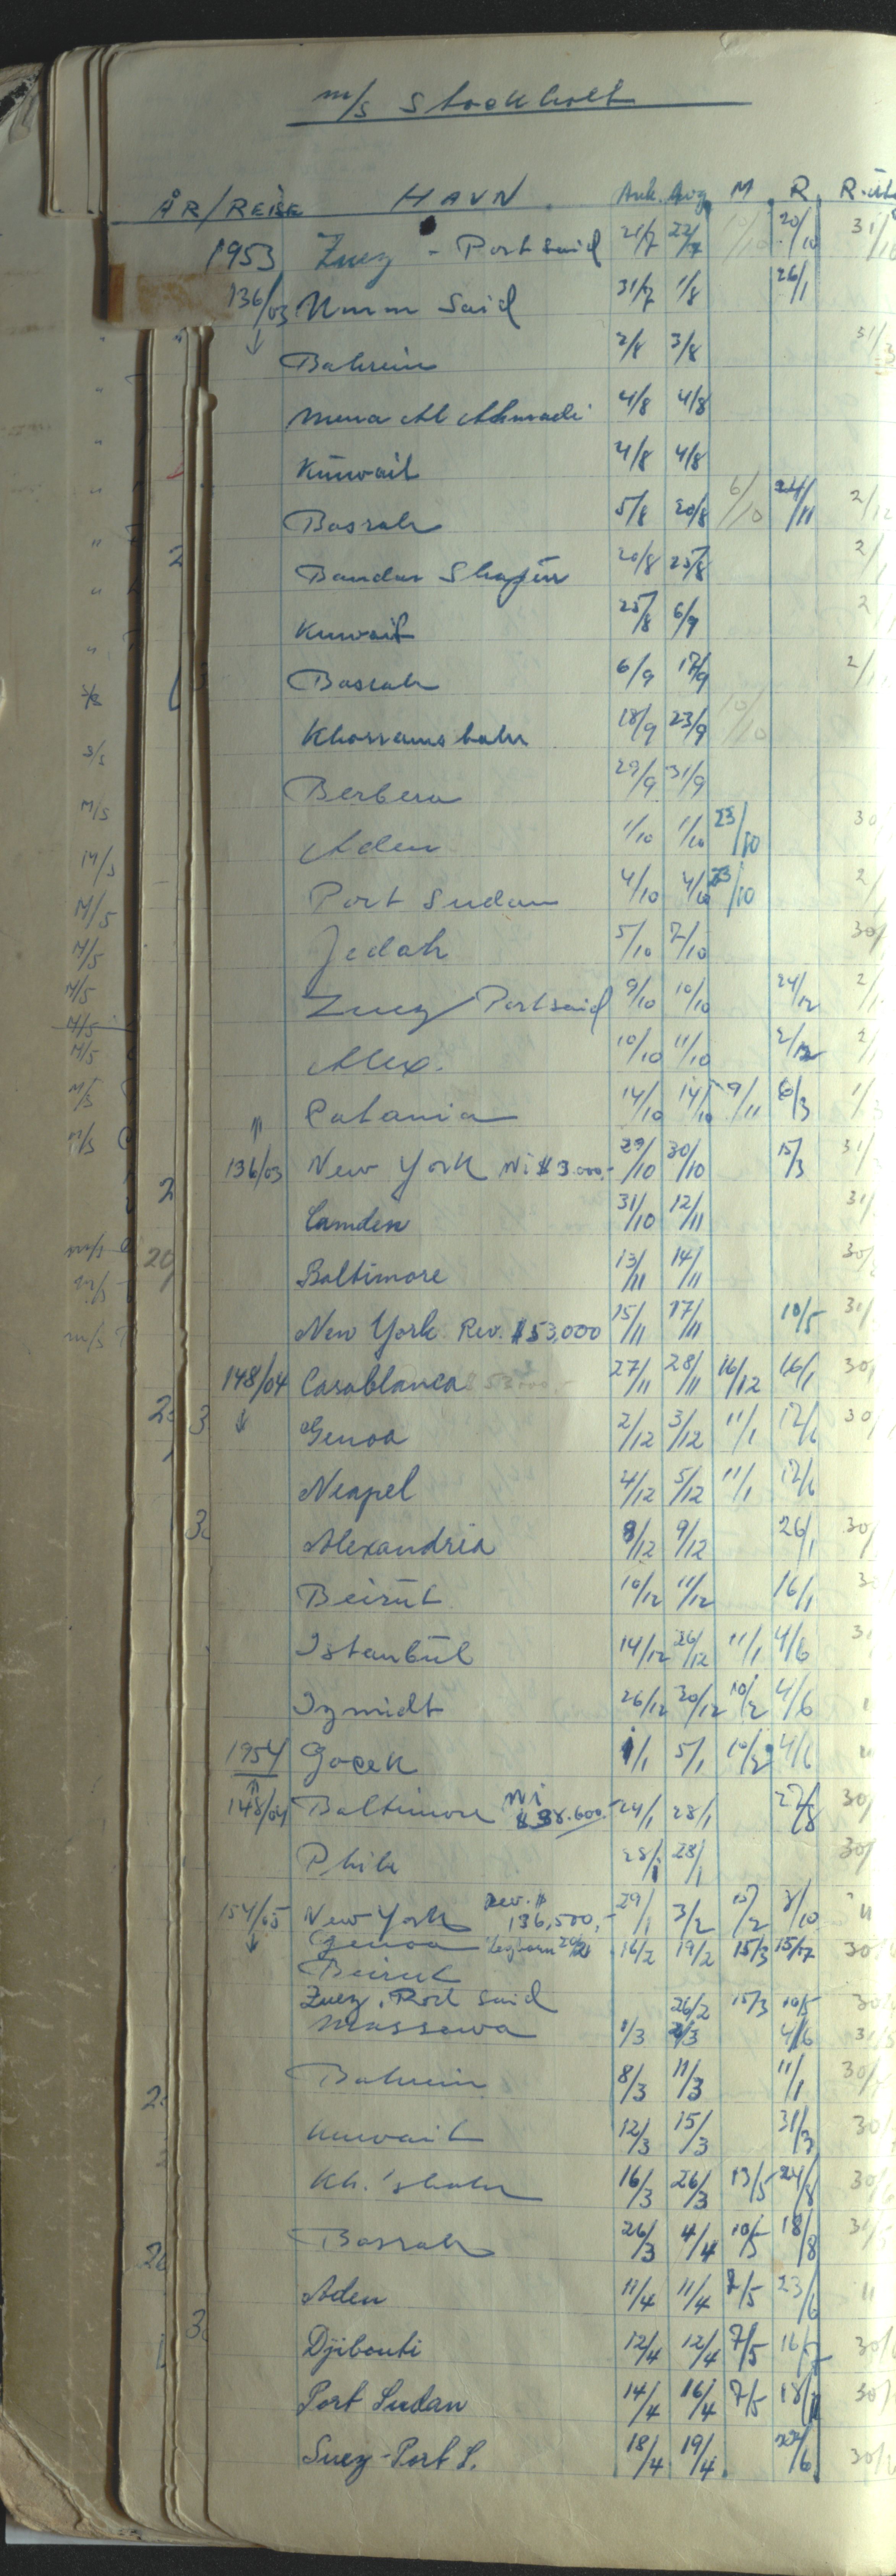 m/s Stockholt
ÅR/REISE HAVN Ank. Avg. M R
1953 Zuez - Port said 21/7 22/7 10/10 20/10 31/10
136/03 Umm Said 31/7 1/8 26/1
Bahrein 2/8 3/8 31/3
Mena Al Ahmadi 4/8 4/8
Kuwait 4/8 4/8
Basrah 5/8 20/8 6/10 24/11 2/12
Bandar Shapür 20/8 25/8 2/
Kuwait 25/8 6/9 2
Basrah 6/9 17/9 2/11
Khorramshahr 18/9 23/9 10/10
Berbera 29/9 31/9
Aden 1/10 1/10 23/10 30
Port Sudan 4/10 4/10 23/10 2/
Jedah 5/10 7/10 30/
Zuez Portsaid 9/10 10/10 24/12 2/
Alex. 10/10 11/10 2/12 2/
Catania 14/10 14/10 9/11 6/3 1/
136/03 New York Ni $ 3.000,- 29/10 30/10 15/3 31/
Camden 31/10 12/11 31/
Baltimore 13/11 14/11 30/
New York Rev. $53,000 15/11 17/11 10/5 31/
148/04 Casablanca 27/11 28/11 16/12 16/1 30/
Genoa 2/12 3/12 11/1 12/6 30
Neapel 4/12 5/12 11/1 12/6
Alexandria 8/12 9/12 26/1 30/
Beirüt 10/12 11/12 16/1 3
Istanbül 14/12 26/12 11/1 4/6 3
Izmidt 26/12 30/12 10/2 4/6 "
1954 Gocek 1/1 5/1 10/2 4/6 "
148/04 Baltimore Ni $ 38.600.- 24/1 28/1 27/8 30/
Phila 28/1 28/1 30/
154/05 New York Rev. $ 136,500,- 29/1 3/2 15/2 8/10 "
Genoa Leghorn 20/2 16/2 19/2 15/3 15/7 30
Beirut
Zuez, Port Said 26/2 15/3 10/5 30
Massawa 1/3 2/3 4/6 31/5
Bahrein 8/3 11/3 11/1 30/
Kuwait 12/3 15/3 31/3 30
Kh.'shahr 16/3 26/3 13/5 24/8 30/
Basrah 26/3 4/4 10/5 18/8 31/
Aden 11/4 11/4 7/5 23/6 "
Djibouti 12/4 12/4 7/5 16/7 30/
Port Sudan 14/4 16/4 7/5 18/ 30/
Suez-Port S. 18/4 19/4 22/6 30/